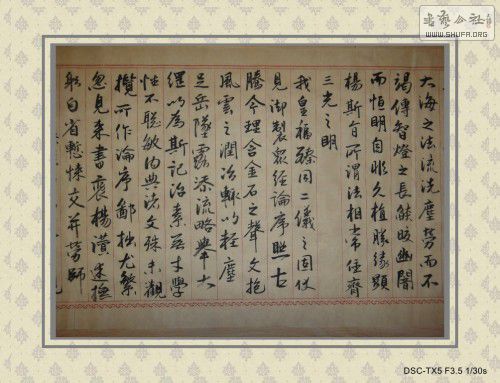 书艺公社
WWW.SHUFA.ORG
大海之法流洗塵勞而不
竭傳智燈之長焰皎幽闇
而恒明自非久植勝緣顯
揚斯旨所謂法相常住齊
三光之明
我皇福臻同二儀之固伏
見御製衆經論序照古
騰今理含金石之聲文抱
風雲之潤治輒以輕塵
足岳墜露添流略舉大
綱以爲斯記治素無才學
性不聰敏內典諸文殊未觀
攬所作論序鄙拙尤繁
忽見來書褒揚讚述撫
躬自省慙悚交并勞師
DSC-TX5 F3.5 1/30s